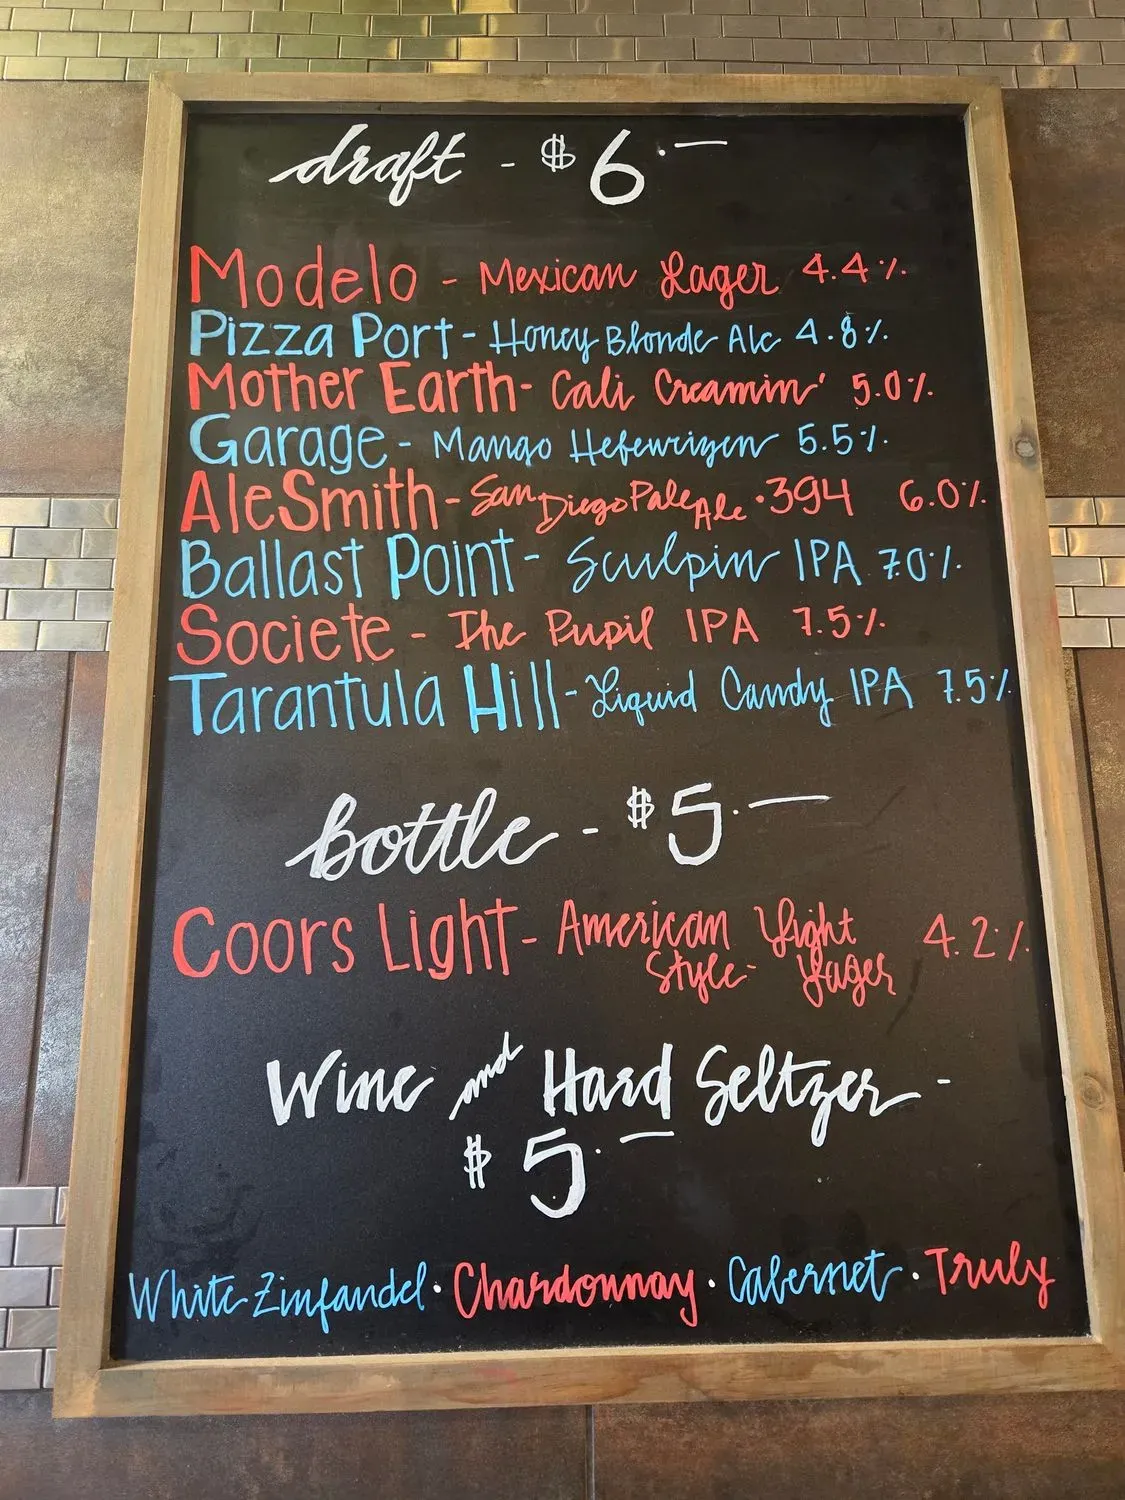 draft - $6.—
Modelo - Mexican Lager 4.4%
Pizza Port - Honey Blonde Ale 4.8%
Mother Earth - Cali Creamin' 5.0%
Garage - Mango Hefeweizen 5.5%
AleSmith - San Diego Pale Ale .394 6.0%
Ballast Point - Sculpin IPA 7.0%
Societe - The Pupil IPA 7.5%
Tarantula Hill - Liquid Candy IPA 7.5%
bottle - $5.—
Coors Light - American Light 4.2%
Style Lager
Wine and Hard Seltzer -
$5.—
White Zinfandel · Chardonnay · Cabernet · Truly